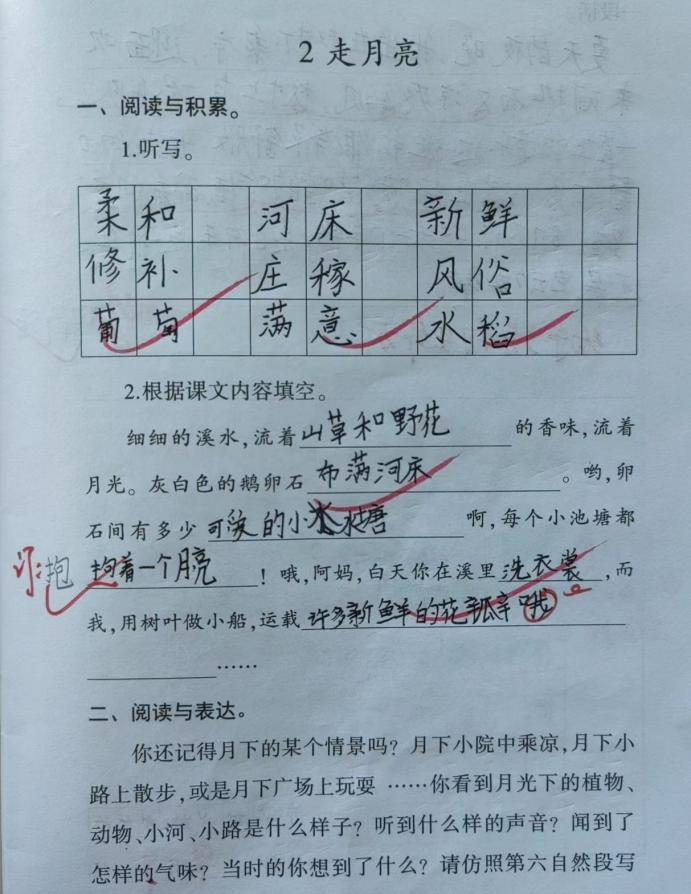 2 走月亮
一、阅读与积累。
1.听写。
柔和 河床 新鲜
修补 庄稼 风俗
葡萄 满意 水稻
2.根据课文内容填空。
细细的溪水,流着山草和野花的香味,流着
月光。灰白色的鹅卵石布满河床。哟,卵
石间有多少可爱的小水塘啊,每个小池塘都
订:抱 抱着一个月亮!哦,阿妈,白天你在溪里洗衣裳,而
我,用树叶做小船,运载许多新鲜的花瓣哦
……
二、阅读与表达。
你还记得月下的某个情景吗?月下小院中乘凉,月下小
路上散步,或是月下广场上玩耍……你看到月光下的植物、
动物、小河、小路是什么样子?听到什么样的声音?闻到了
怎样的气味?当时的你想到了什么?请仿照第六自然段写